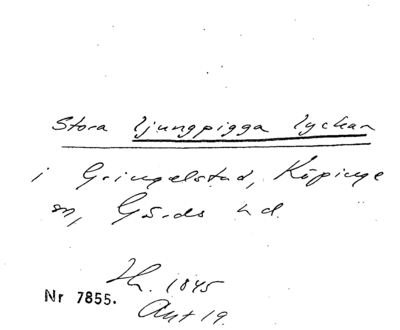 Stora ljungpigga lyckan
i Gringelstad, Köpinge
sn, Gärds hd.
Lh. 1845
Nr 7855.
Akt 19.